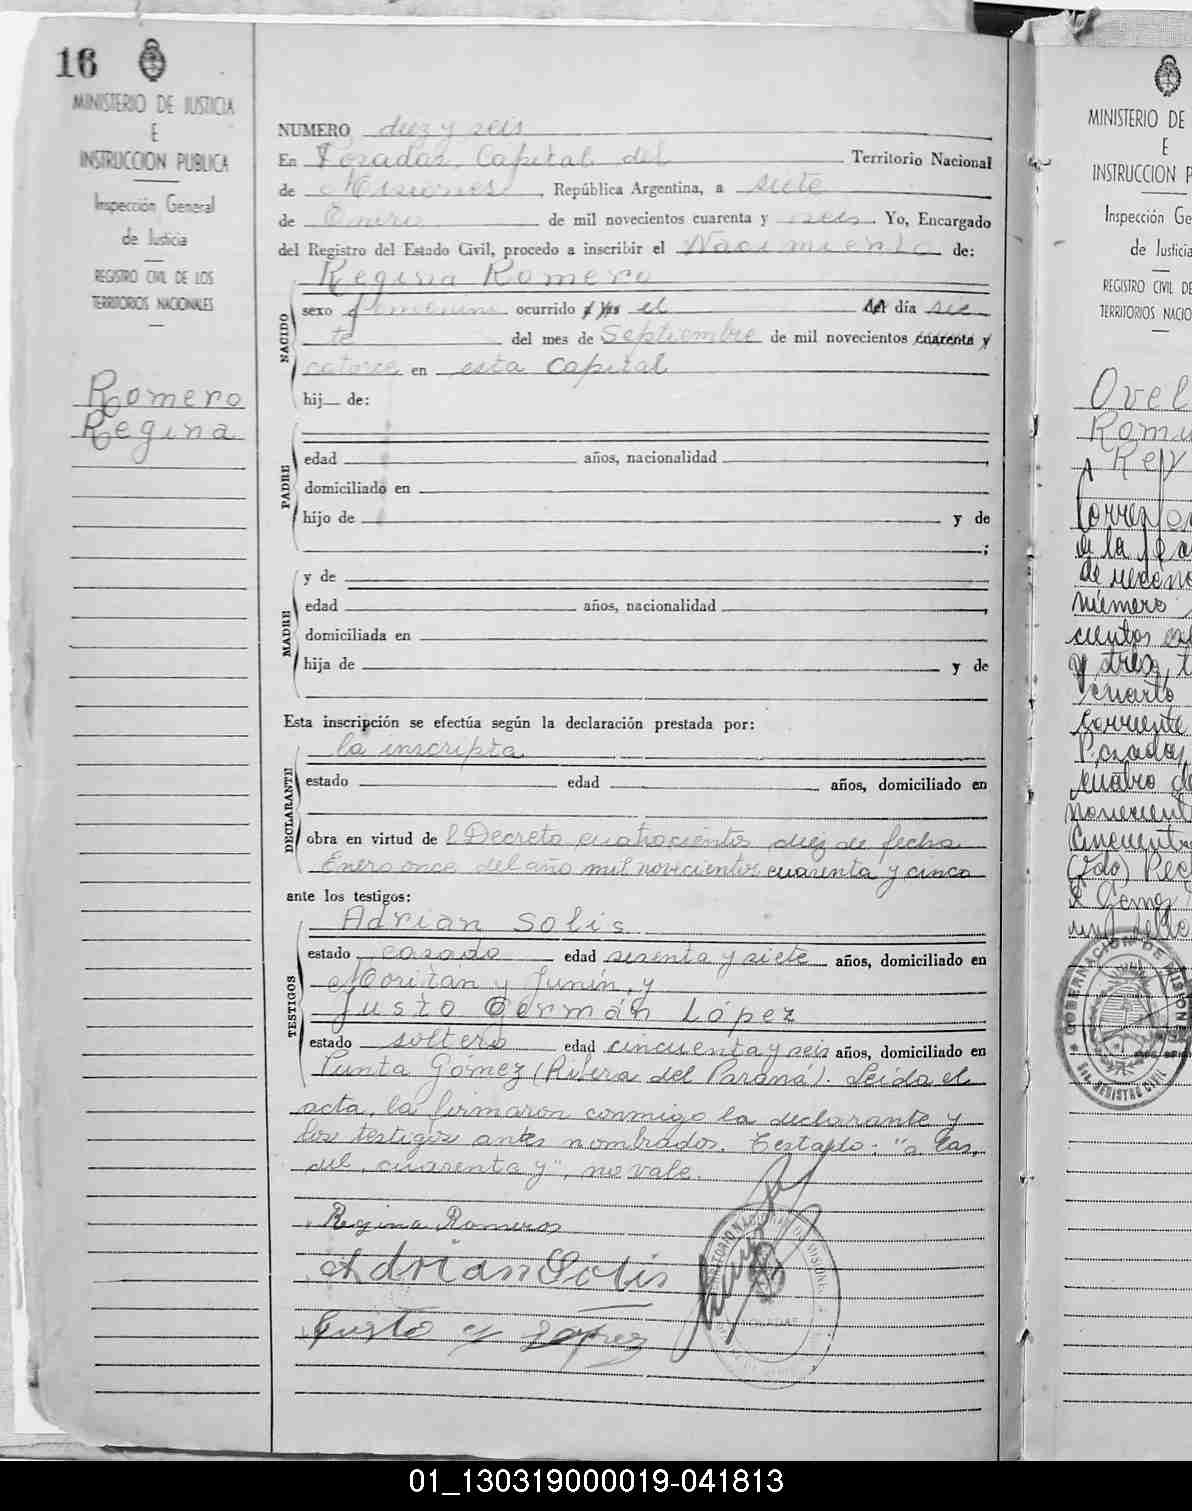 16
MINISTERIO DE JUSTICIA
E
INSTRUCCION PUBLICA
Inspección General
de Justicia
REGISTRO CIVIL DE LOS
TERRITORIOS NACIONALES
Romero
Regina
NUMERO diez y seis
En Posadas, Capital del Territorio Nacional
de Misiones, República Argentina, a siete
de Enero de mil novecientos cuarenta y seis. Yo, Encargado
del Registro del Estado Civil, procedo a inscribir el Nacimiento de:
Regina Romero
NACIDO
sexo femenino ocurrido el día sie
te del mes de Septiembre de mil novecientos cuarenta y
catorce en esta Capital
hij de:
PADRE
edad años, nacionalidad
domiciliado en
hijo de y de
;
MADRE
y de
edad años, nacionalidad
domiciliada en
hija de y de
Esta inscripción se efectúa según la declaración prestada por:
DECLARANTE
la inscripta
estado edad años, domiciliado en
obra en virtud de l Decreto cuatrocientos diez de fecha
Enero once del año mil novecientos cuarenta y cinco
ante los testigos:
TESTIGOS
Adrian Solis
estado casado edad sesenta y siete años, domiciliado en
Moritán y Junín, y
Justo Germán López
estado soltero edad cincuenta y seis años, domiciliado en
Punta Gómez (Ribera del Paraná). Leida el
acta, la firmaron conmigo la declarante y
los testigos antes nombrados. Testado: "a las,
del, cuarenta y", no vale.
Regina Romeros
Adrian Solis
Justo G Lopez
MINISTERIO DE
E
INSTRUCCION P
Inspección Ge
de Justicia
REGISTRO CIVIL DE
TERRITORIOS NACIO
Ovel
Romu
Correspon
de la
número
cientos
y tres, t
cuarto
corriente
Posadas,
cuatro de
novecient
cincuent
Gomez
un sello
GOBERNACION DE MISIONES
REGISTRO CIVIL
01_130319000019-041813